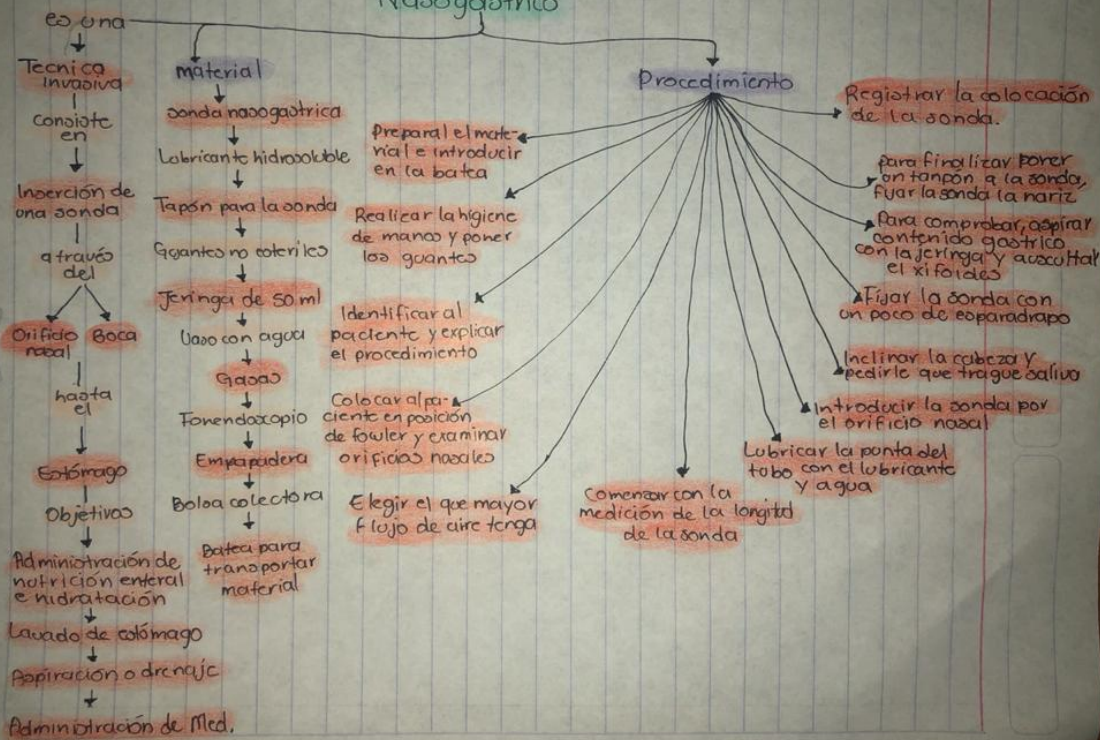 Nasogastrico
es una
Tecnica
invasiva
consiste
en
Inserción de
una sonda
através
del
Orificio
nasal
Boca
hasta
el
Estómago
Objetivos
Administración de
nutrición enteral
e hidratación
Lavado de estómago
Aspiración o drenaje
Administración de Med.
material
sonda nasogastrica
Lubricante hidrosoluble
Tapón para la sonda
Guantes no esteriles
Jeringa de 50 ml
Vaso con agua
Gasas
Fonendoscopio
Empapadera
Bolsa colectora
Batea para
transportar
material
Procedimiento
Preparal el mate-
rial e introducir
en la batea
Realizar la higiene
de manos y poner
los guantes
Identificar al
paciente y explicar
el procedimiento
Colocar al pa-
ciente en posición
de fowler y examinar
orificios nasales
Elegir el que mayor
flujo de aire tenga
Comenzar con la
medición de la longitud
de la sonda
Lubricar la punta del
tubo con el lubricante
y agua
Introducir la sonda por
el orificio nasal
Inclinar la cabeza y
pedirle que trague saliva
Fijar la sonda con
un poco de esparadrapo
Para comprobar, aspirar
contenido gastrico
con la jeringa y auscultar
el xifoides
para finalizar poner
un tanpón a la sonda,
fijar la sonda la nariz
Registrar la colocación
de la sonda.